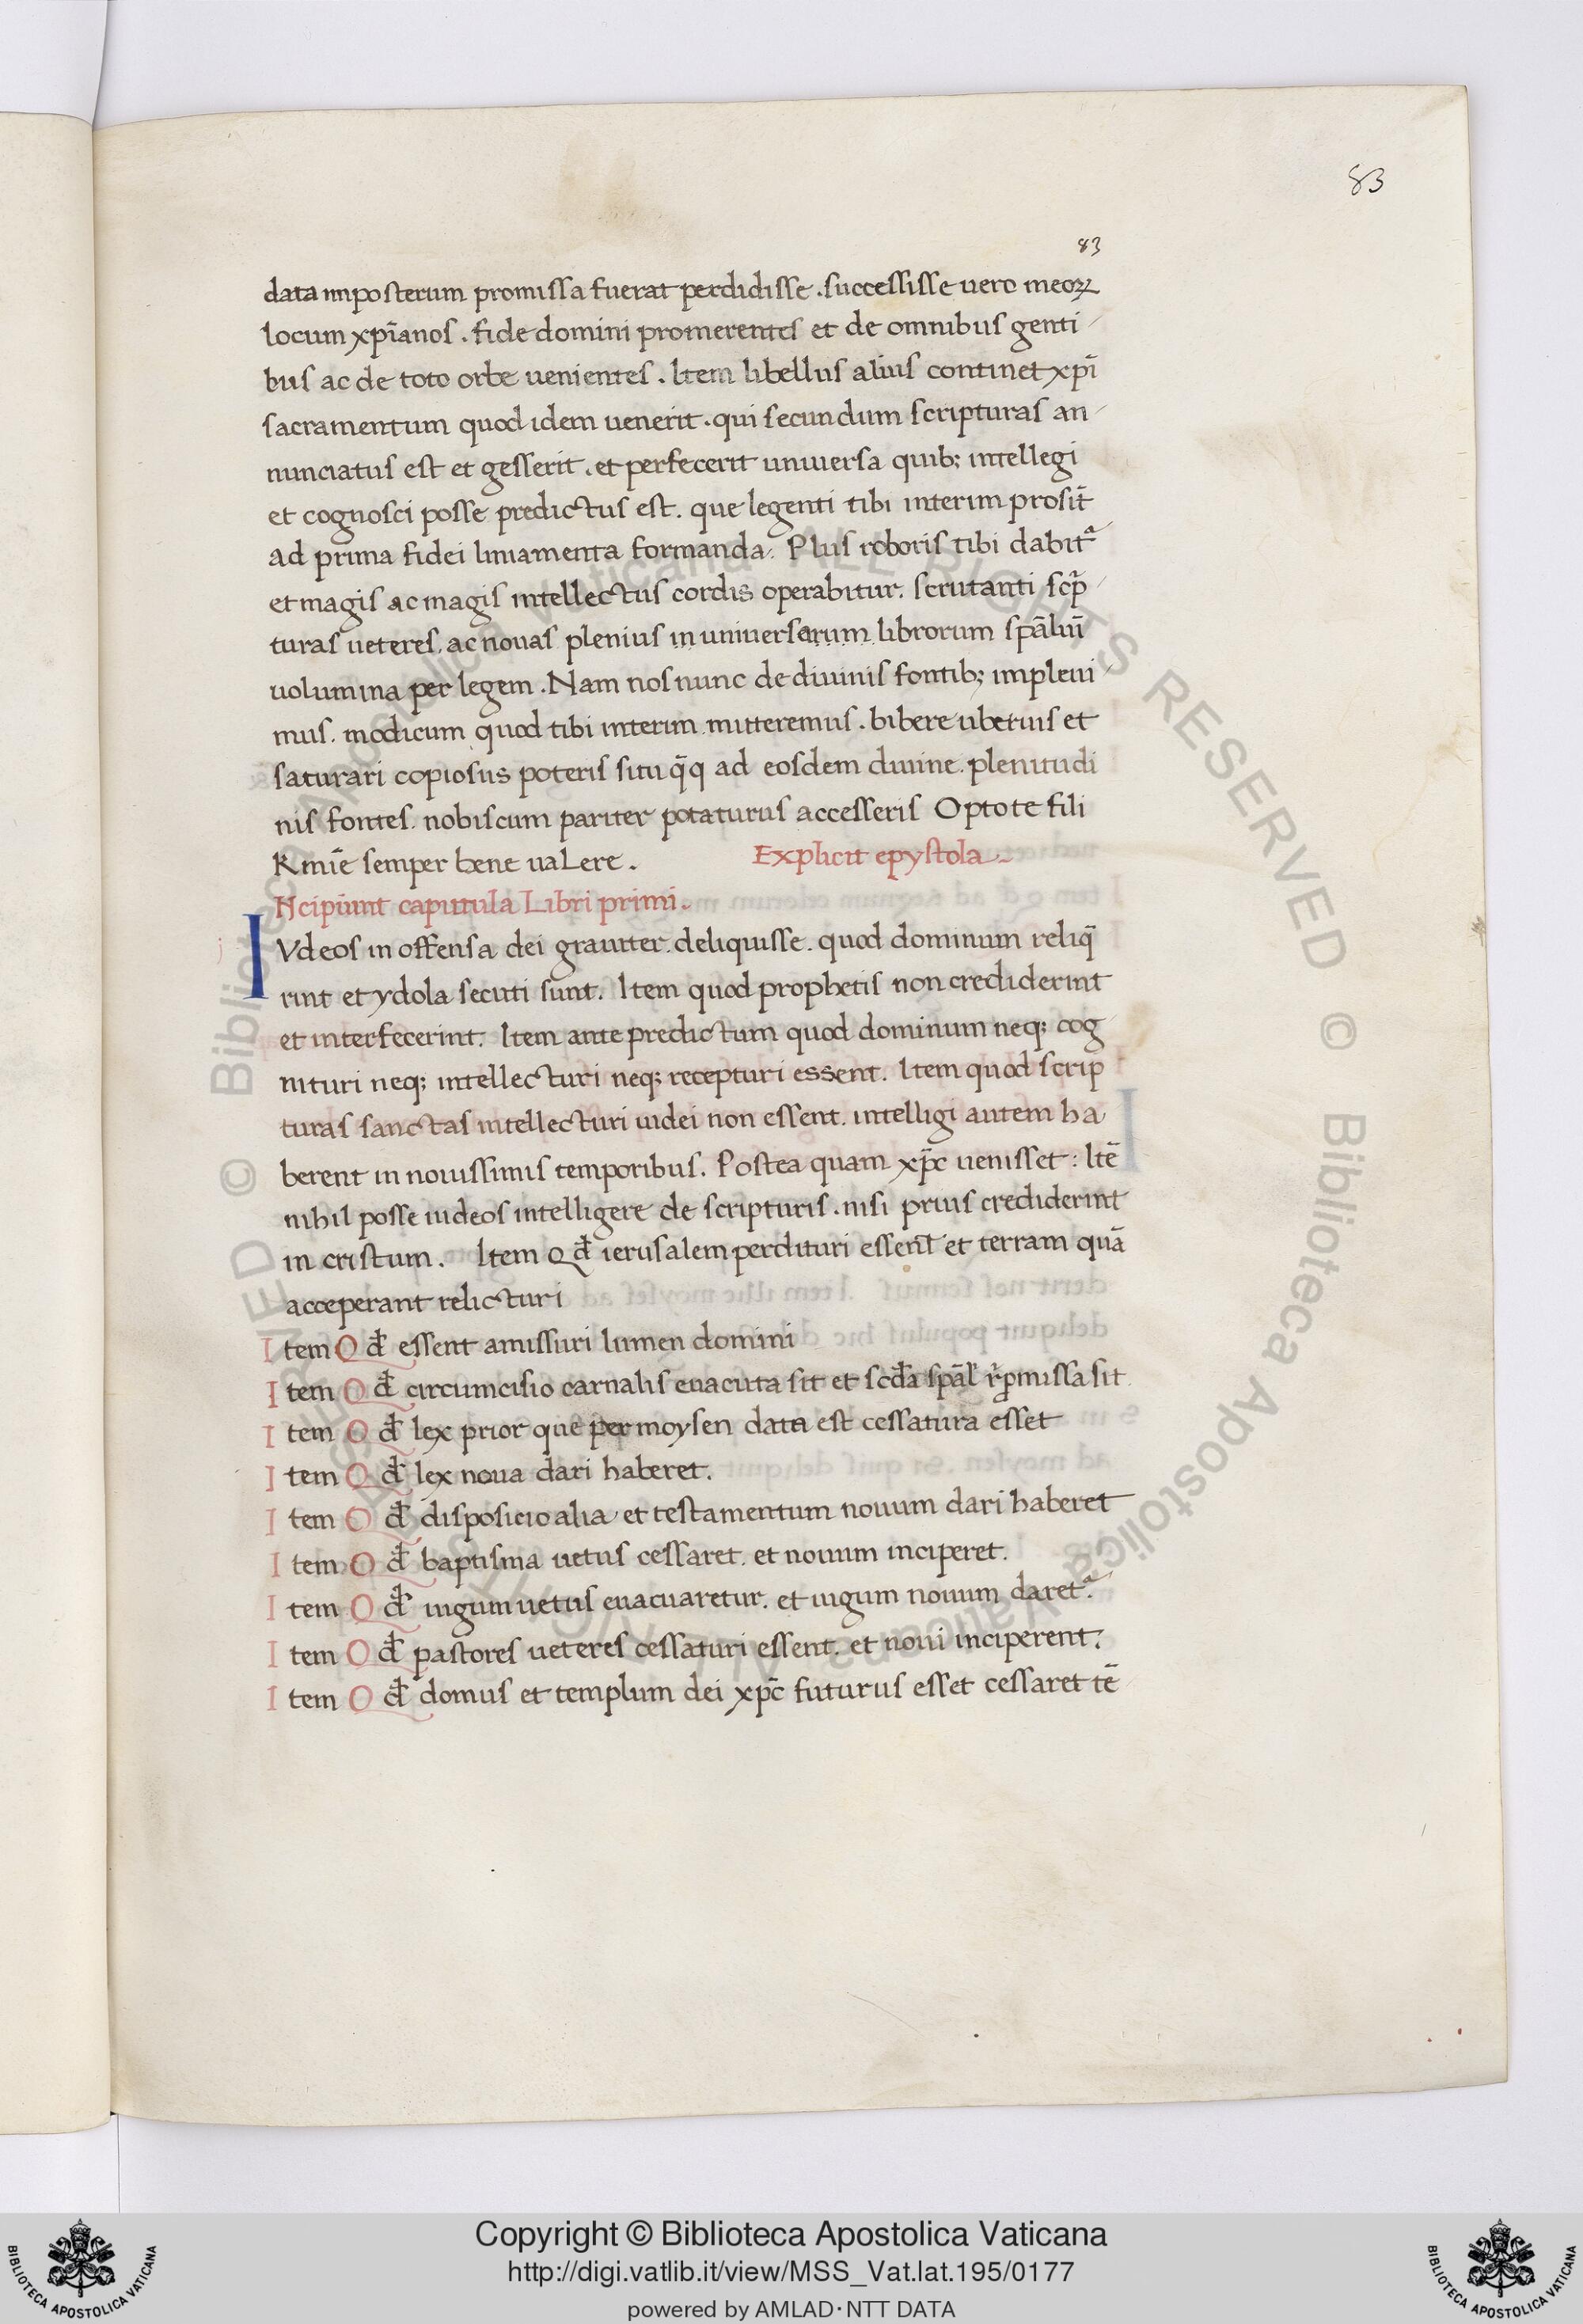 83
83
data inposterum promissa fuerat perdidisse . successisse uero meoꝝ
locum xp̄ianos . fide domini promerentes et de omnibus genti
bus ac de toto orbe uenientes . Item libellus alius continet xp̄i
sacramentum quod idem uenerit . qui secundum scripturas an
nunciatus est et gesserit . et perfecerit uniuersa quib; intellegi
et cognosci posse predictus est . que legenti tibi interim prosit̄
ad prima fidei liniamenta formanda . Plus roboris tibi dabit᷑
et magis ac magis intellectus cordis operabitur . scrutanti scp̄
turas ueteres . ac nouas plenius in uniuersarum librorum sp̄aliū
uolumina per legem . Nam nos nunc de diuinis fontib; impleui
mus . modicum quod tibi interim mitteremus . bibere uberius et
saturari copiosius poteris si tu q̄q ad eosdem diuine . plenitudi
nis fontes . nobiscum pariter potaturus accesseris Opto te fili
Kmīe semper bene uaLere . Explicit epystola .
Ncipiunt capitula Libri primi .
IVdeos in offensa dei grauiter . deliquisse . quod dominum reliq̄
rint et ydola secuti sunt . Item quod prophetis non crediderint
et interfecerint . Item ante predictum quod dominum neq; cog
nituri neq; intellecturi neq; recepturi essent . Item quod scrip
turas sanctas intellecturi iudei non essent . intelligi autem ha
berent in nouissimis temporibus . Postea quam xp̄c uenisset : Itē
nihil posse iudeos intelligere de scripturis . nisi prius crediderint
in cristum . Item Qđ ierusalem perdituri essent et terram quā
acceperant relicturi
Item Qđ essent amissuri lumen domini
Item Qđ circumcisio carnalis euacuta sit et scđa sp̄al' r̓pmissa sit
Item Qđ lex prior que per moysen data est cessatura esset
Item Qđ lex noua dari haberet .
Item Qđ disposicio alia et testamentum nouum dari haberet
Item Qđ baptisma uetus cessaret . et nouum inciperet .
Item Qđ iugum uetus euacuaretur . et iugum nouum daret᷑ .
Item Qđ pastores ueteres cessaturi essent . et noui inciperent .
Item Qđ domus et templum dei xp̄c futurus esset cessaret tē
© Biblioteca Apostolica Vaticana ALL RIGHTS RESERVED
Copyright © Biblioteca Apostolica Vaticana
http://digi.vatlib.it/view/MSS_Vat.lat.195/0177
powered by AMLAD·NTT DATA
BIBLIOTECA APOSTOLICA VATICANA
BIBLIOTECA APOSTOLICA VATICANA